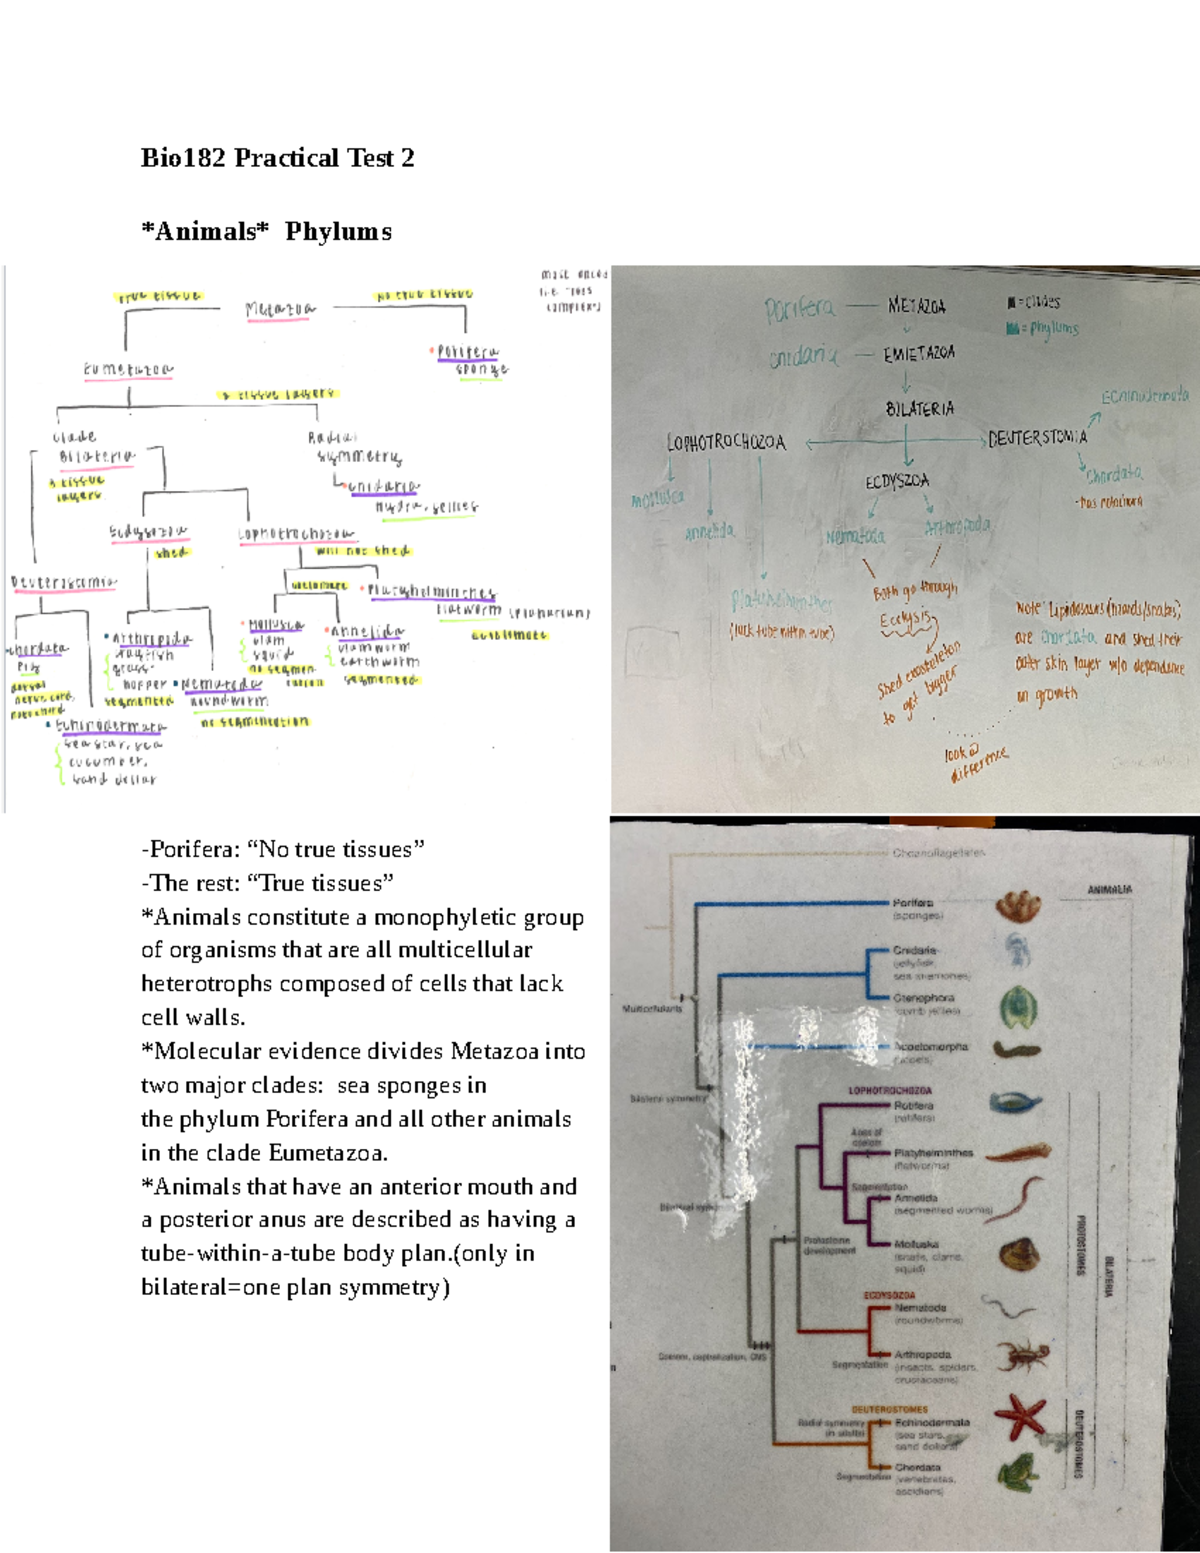 Bio182 Practical Test 2
*Animals* Phylums
true tissue
no true tissue
Metazoa
Porifera
sponge
Eumetazoa
tissue layers
Clade
Bilateria
3 tissue
layers
Radial
symmetry
cnidaria
Hydra, jellies
Ecdysozoa
shed
Lophotrochozoa
will not shed
Deuterostomia
Platyhelminthes
flatworm (planarian)
Mollusca
clam
squid
no segmen
tation
Annelida
clamworm
earthworm
segmented
Chordata
pig
dorsal
nerve cord,
notochord
Arthropoda
crayfish
grass-
hopper
segmented
Nematoda
roundworm
no segmentation
Echinodermata
sea star, sea
cucumber,
sand dollar
Porifera
METAZOA
= clades
= phylums
cnidaria
EMIETAZOA
BILATERIA
LOPHOTROCHOZOA
DEUTERSTOMIA
Echinodermata
Chordata
-has notochord
ECDYSZOA
Mollusca
Annelida
Nematoda
Arthropoda
Platyhelminthes
(lack tube within tube)
Both go through
Ecdysis
Shed exoskeleton
to get bigger
Note: Lipidosaurs (lizards/snakes)
are Chordata and shed their
outer skin layer w/o dependence
on growth
look @
difference
-Porifera: “No true tissues”
-The rest: “True tissues”
*Animals constitute a monophyletic group
of organisms that are all multicellular
heterotrophs composed of cells that lack
cell walls.
*Molecular evidence divides Metazoa into
two major clades: sea sponges in
the phylum Porifera and all other animals
in the clade Eumetazoa.
*Animals that have an anterior mouth and
a posterior anus are described as having a
tube-within-a-tube body plan.(only in
bilateral=one plan symmetry)
Choanoflagellates
ANIMALIA
Porifera
(sponges)
Cnidaria
(jellyfish,
sea anemones)
Ctenophora
(comb jellies)
Multicellularity
Acoelomorpha
(acoels)
LOPHOTROCHOZOA
Rotifera
(rotifers)
Platyhelminthes
(flatworms)
Segmentation
Annelida
(segmented worms)
Protostome
development
Molluska
(snails, clams,
squid)
PROTOSTOMES
BILATERIA
ECDYSOZOA
Nematoda
(roundworms)
Coelom, cephalization, CNS
Arthropoda
Segmentation
(insects, spiders,
crustaceans)
DEUTEROSTOMES
Radial symmetry
(in adults)
Echinodermata
(sea stars,
sand dollars)
Chordata
Segmentation
(vertebrates,
ascidians)
DEUTEROSTOMES